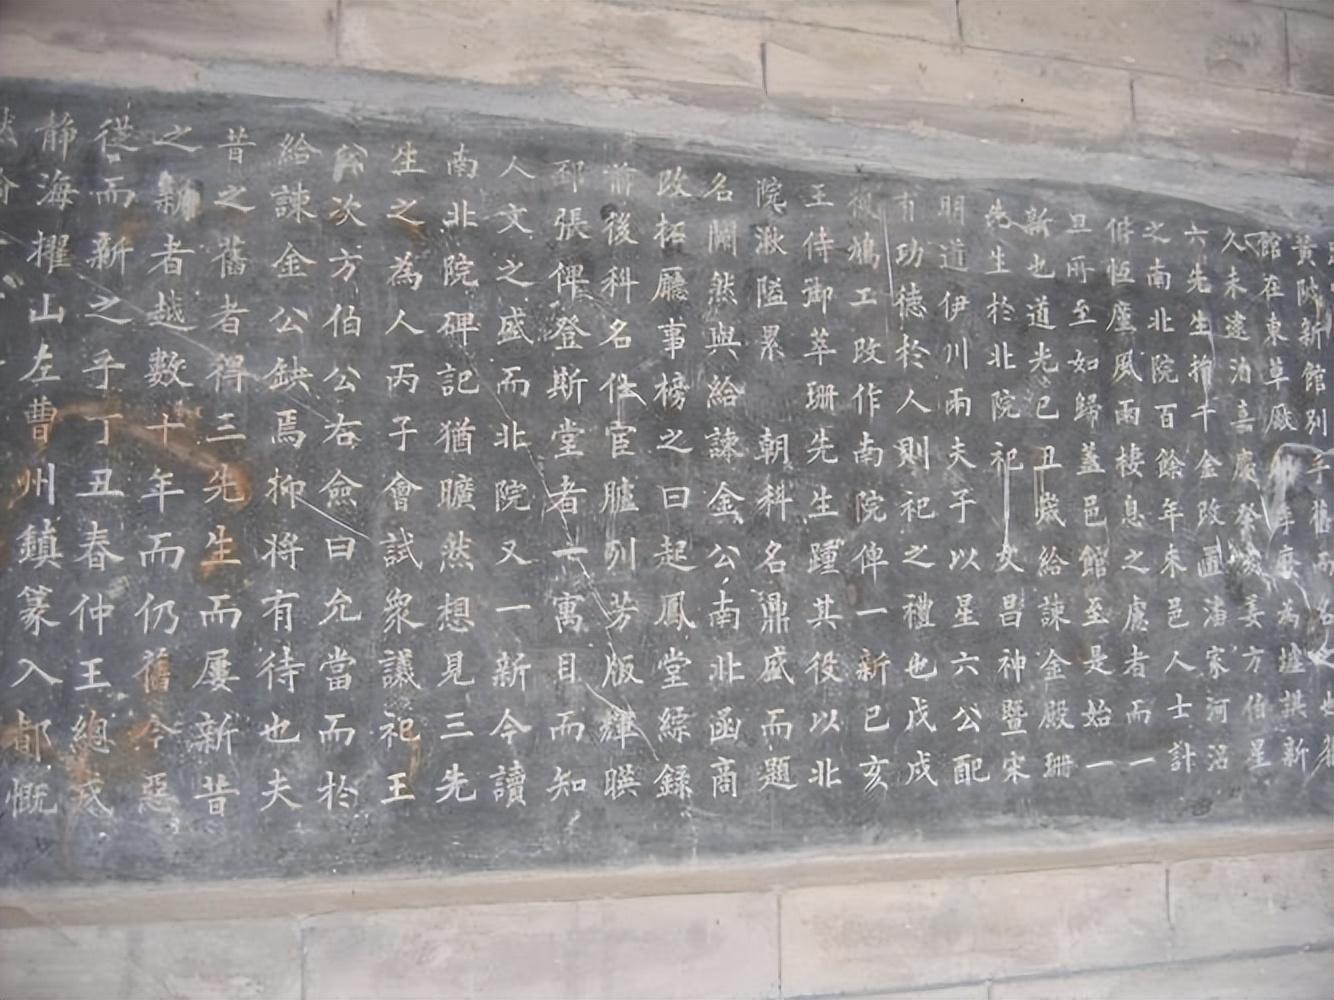 黄陂新館別於舊而名之也舊
館在東草厰
久未遑泊喜廠癸姜方伯星
六先生捐千金改圖潘家河沿
之南北院百餘年來邑人士計
偕恆塵風雨棲息之處者而一
旦所至如歸蓋邑館至是始一
新也道光己丑歲給諫金殿珊
先生於北院祀文昌神暨宋
明道伊川兩夫子以星六公配
有功德於人則祀之禮也戊戌
復鳩工改作南院俾一新己亥
王侍御萃珊先生踵其役以北
院湫隘累朝科名鼎盛而題
名闕然與給諫金公南北函商
改柘廳事榜之曰起鳳堂綜錄
前後科名仕宦臚列芳版輝暎
邳張俾登斯堂者一寓目而知
人文之盛而北院又一新今讀
南北院碑記猶曠然想見三先
生之為人丙子會試衆議祀王
公次方伯公右僉曰允當而於
給諫金公缺焉抑將有待也夫
昔之舊者得三先生而屢新昔
之新者越數十年而仍舊今惡
從而新之乎丁丑春仲王總戎
靜海櫂山左曹州鎮篆入都慨